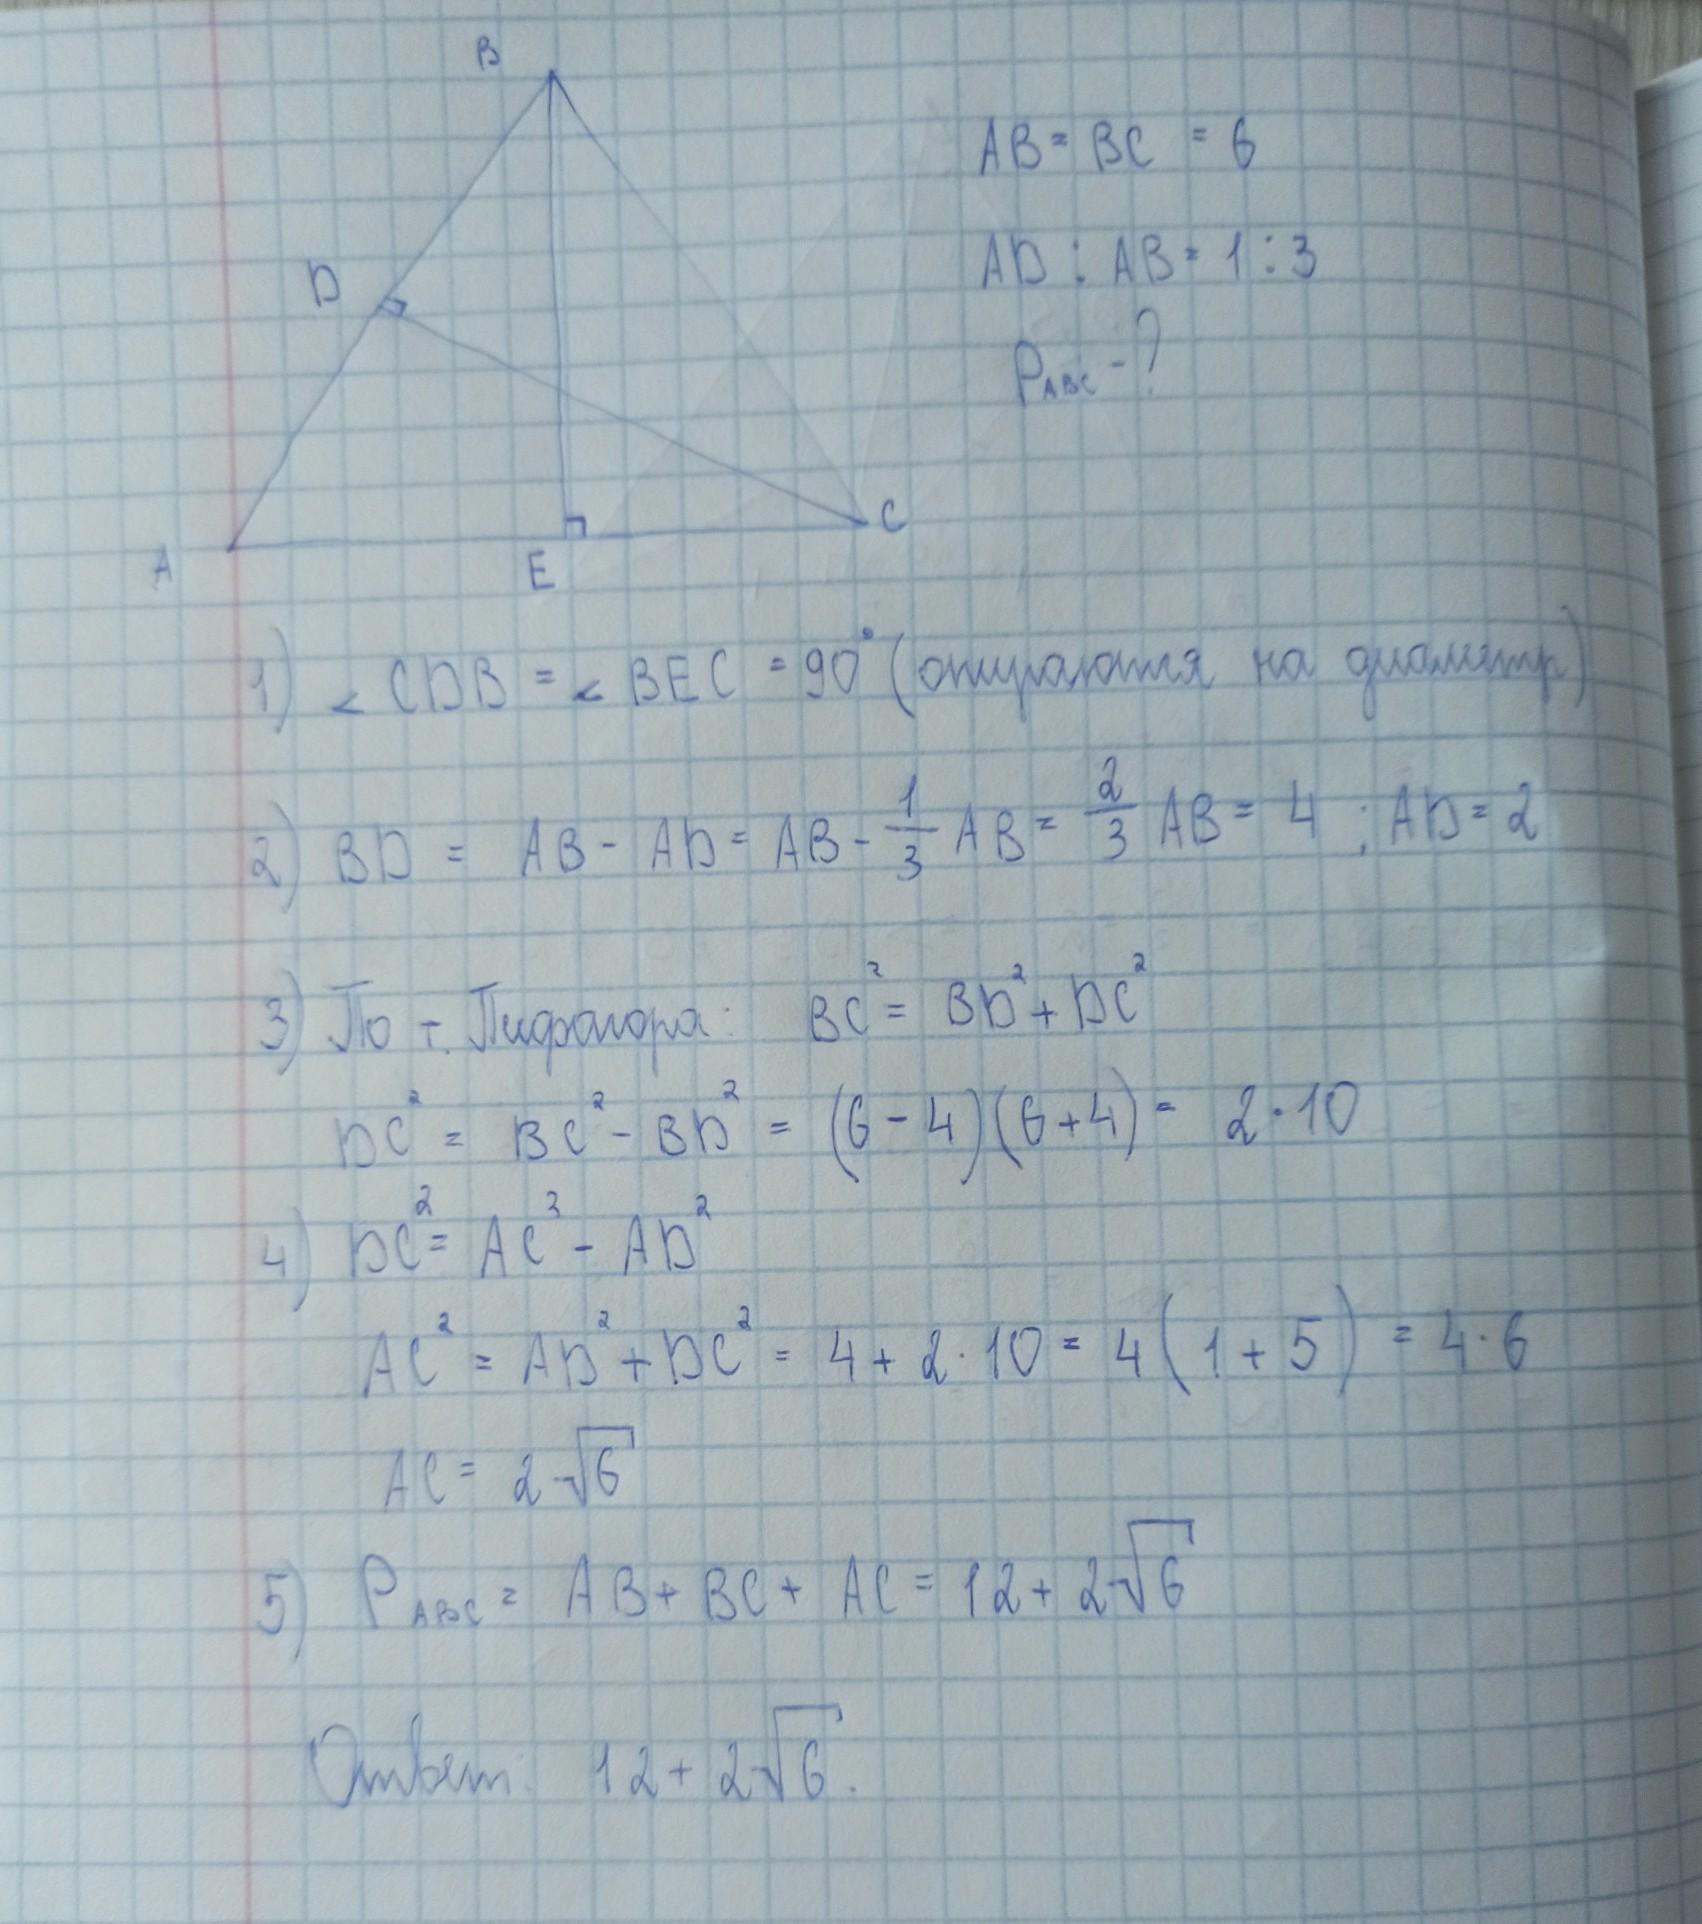 B
AB = BC = 6
D
AD : AB = 1 : 3
P_ABC - ?
C
A
E
1) ∠ CDB = ∠ BEC = 90° (опираются на диаметр)
2) BD = AB - AD = AB - 1/3 AB = 2/3 AB = 4 ; AD = 2
3) По т. Пифагора: BC² = BD² + DC²
DC² = BC² - BD² = (6 - 4)(6 + 4) = 2 · 10
4) DC² = AC² - AD²
AC² = AD² + DC² = 4 + 2 · 10 = 4(1 + 5) = 4 · 6
AC = 2√6
5) P_ABC = AB + BC + AC = 12 + 2√6
Ответ: 12 + 2√6.